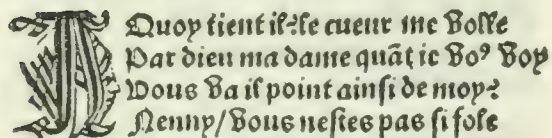 A Quoy tient il? le cueur me volle
Par dieu ma dame quãt ie voꝰ voy
Vous va il point ainsi de moy?
Nenny/ vous nestes pas si fole